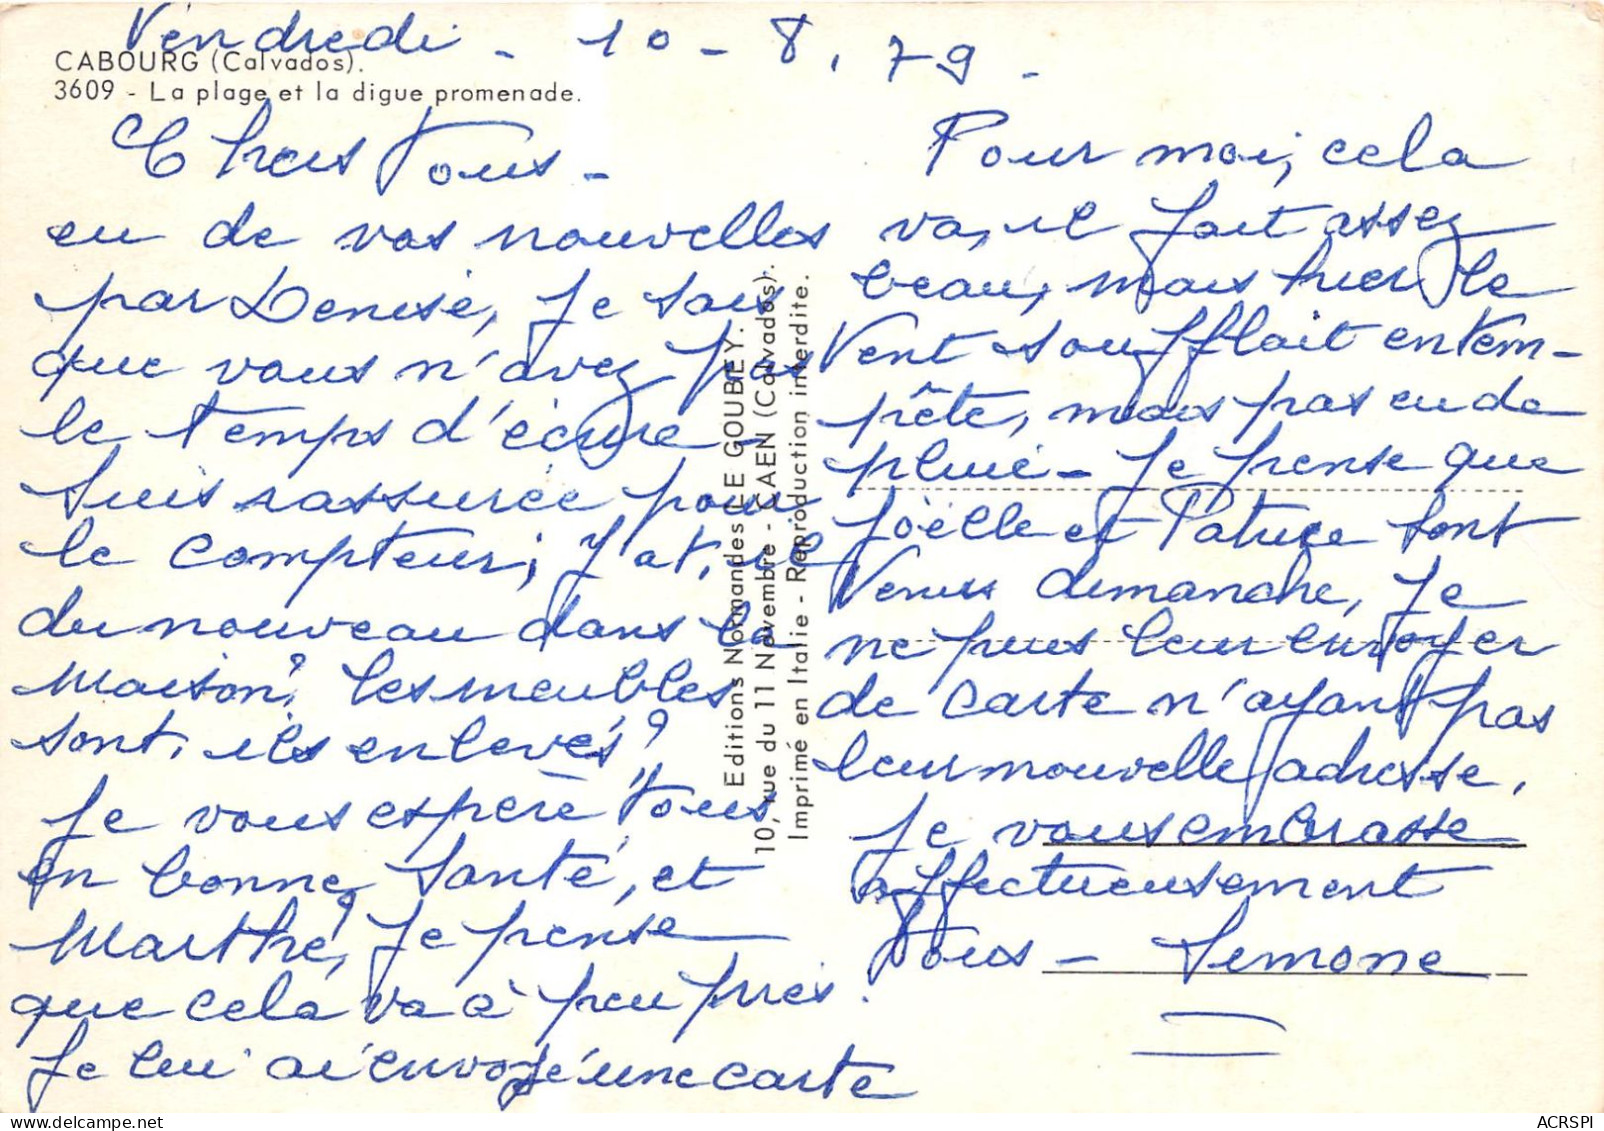 Vendredi - 10 - 8. 79 -
CABOURG (Calvados).
3609 - La plage et la digue promenade.
Chers Tous -
eu de vos nouvelles
par Denise, je sais
que vous n'avez pas
le temps d'écrire -
Suis rassurée pour
le compteur; y at. il
du nouveau dans la
maison? les meubles
sont. ils enlevés?
Je vous espère tous
en bonne santé, et
Marthe? Je pense
que cela va à peu près.
Je lui ai envoyé une carte
Pour moi, cela
va, il fait assez
beau, mais hier le
vent soufflait en tem-
pête, mais pas eu de
pluie - Je pense que
Joëlle et Patrice sont
venus dimanche, je
ne puis leur envoyer
de carte n'ayant pas
leur nouvelle adresse.
Je vous embrasse
affectueusement
Tous - Simone
Editions Normandes LE GOUBEY.
10, rue du 11 Novembre - CAEN (Calvados).
Imprimé en Italie - Reproduction interdite.
ACRSPI